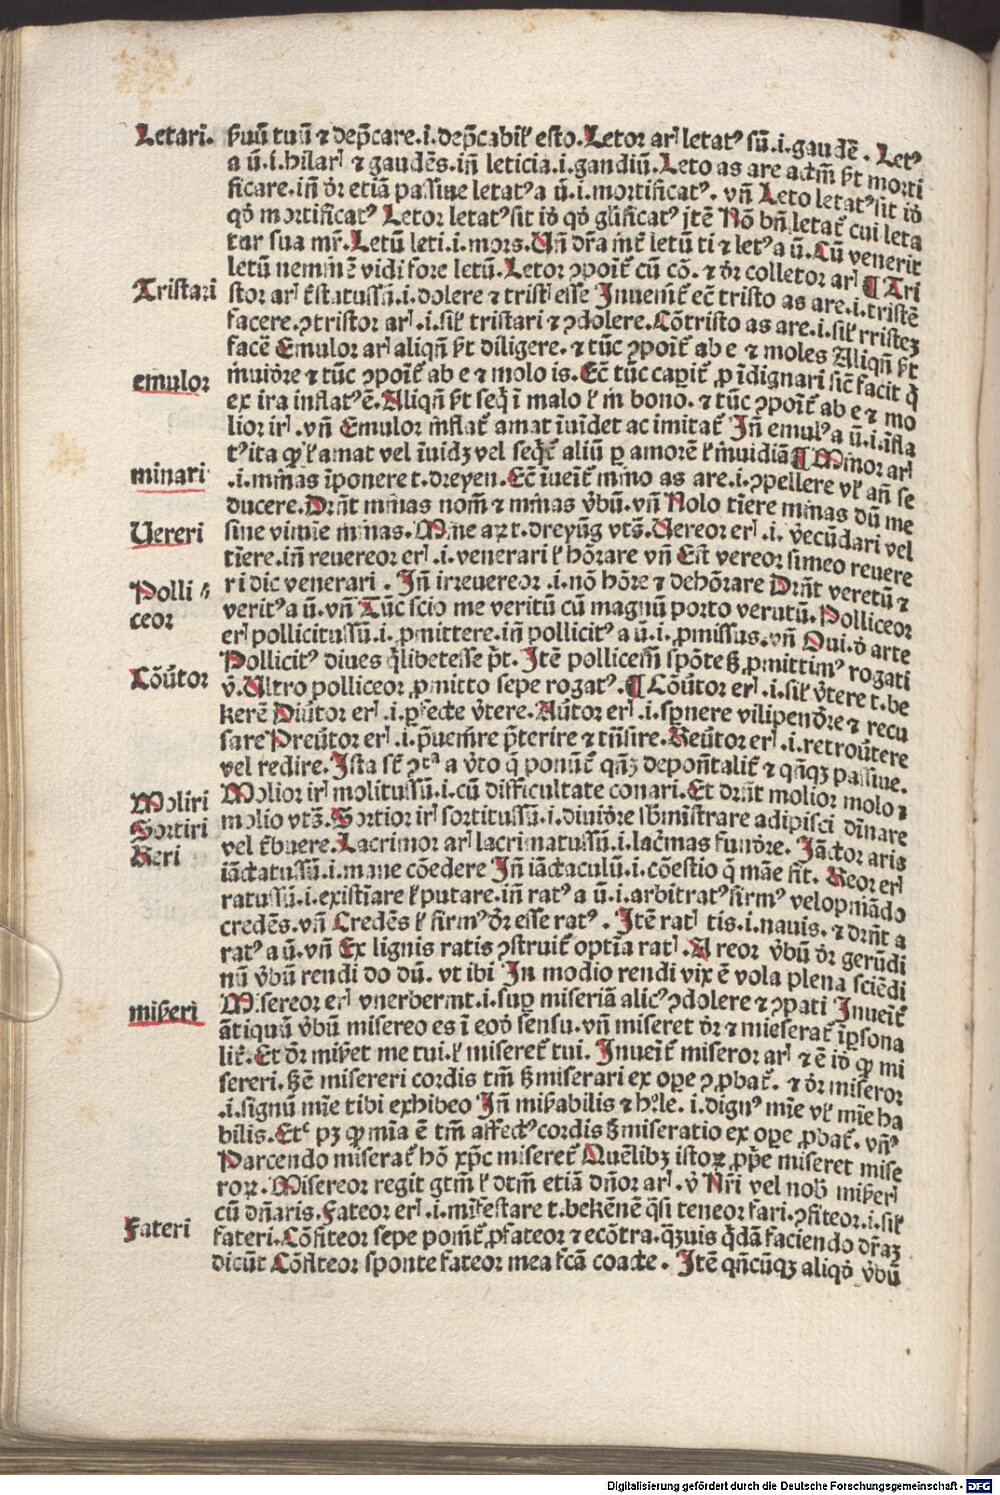 Letari. ꝑuū tuū ⁊ dep̄care.i.dep̄cabiľ esto.Letor arꝭ letatꝰ sū.i.gaudē. Letꝰ
a ū.i.hilarꝭ ⁊ gaudēs.in̄ leticia.i.gandiū.Leto as are actm̄ ꝑt morti
ficare.in̄ dr̄ etiā passiue letatꝰa ū.i.mortificatꝰ. vn̄ Leto letatꝰsit iō
qō mortificatꝰ Letor letatꝰsit iō qō gľificatꝰ jtē Nō bn̄ letat̄ cui leta
tur sua mr̄.Letū leti.i.mors.Un̄ dr̄a int̄ letū ti ⁊ letꝰa ū.Cū venerit
letū neminē vidi fore letū.Letor ꝯpoit̄ cū cō. ⁊ dr̄ colletor arꝭ ¶ Tri
Tristari stor arꝭ t̄statussū.i.dolere ⁊ tristꝭ esse Inuenit̄ ec̄ tristo as are.i.tristē
facere.ꝯtristor arꝭ .i.siľ tristari ⁊ ꝯdolere.Cōtristo as are.i.siľ rristeꝫ
facē Emulor arꝭ aliqn̄ ꝑt diligere. ⁊ tūc ꝯpoit̄ ab e ⁊ moles Aliqn̄ ꝑt
emulor inuidere ⁊ tūc ꝯpoit̄ ab e ⁊ molo is.Ec̄ tūc capit̄ ꝓ īdignari sic̄ facit q̇
ex ira inflatꝰē.Aliqn̄ ꝑt seq̇ ī malo ľ in bono. ⁊ tūc ꝯpoit̄ ab e ⁊ mo
lior irꝭ .vn̄ Emulor inflat̄ amat īuidet ac imitat̄ In̄ emulꝰa ū.i.īfla
tꝰita ꝙ ľ amat vel īuidꝫ vel seq̄t̄ aliū ꝑ amorē ľ inuidiā¶ Minor arꝭ
minari .i.minas īponere t.dreyen.Ec̄ īueit̄ mino as are.i.ꝯpellere vľ an̄ se
ducere.Drn̄t minas nom̄ ⁊ minas v̄bū.vn̄ Nolo tīere minas dū me
Uereri sine vimīe minas.Mine aꝝ t.dreyūg vts̄.Uereor erꝭ .i. v̄ecūdari vel
tīere.in̄ reuereor erꝭ .i.venerari ľ hōrare vn̄ Est vereor simeo reuere
Polli⸗ ri dic venerari . In̄ irreuereor .i.nō hōre ⁊ dehōrare Drn̄t veretū ⁊
ceor veritꝰa ū.vn̄ Tūc scio me veritū cū magnū porto verutū.Polliceor
erꝭ pollicitussū.i.ꝓmittere.in̄ pollicitꝰa ū.i.ꝓmissus.vn̄ Qui.ō arte
Pollicitꝰ diues q̇libetesse pt̄.Itē pollicem̄ spōte ß ꝓmittimꝰ rogati
Cōūtor v̄.Ultro polliceor ꝓmitto sepe rogatꝰ.¶ Cōūtor erꝭ .i.siľ v̄tere t.be
kerē Diūtor erꝭ .i.ꝑfecte v̄tere.Aūtor erꝭ .i.sp̄nere vilipendr̄e ⁊ recu
sare Preūtor erꝭ .i.p̄uenire p̄terire ⁊ tn̄sire.Reūtor erꝭ .i.retroūtere
vel redire.Ista st̄ ꝯtᵃ a v̄to q̄ ponūt̄ qn̄ꝫ depon̄taliť ⁊ qn̄qꝫ passiue.
Moliri Molior irꝭ molitussū.i.cū difficultate conari.Et drn̄t molior molo ⁊
Sortiri molio vts̄.Sortior irꝭ sortitussū.i.diuidr̄e sbministrare adipisci dīnare
Reri vel t̄buere.Lacrimor arꝭ lacrimatussū.i.lac̄mas fundr̄e. Iāctor aris
iāctatussū.i.mane cōedere In̄ iāctaculū.i.cōestio q̄ māe fit̄. Reor erꝭ
ratussū.i.existīare ľ putare.in̄ ratꝰ a ū.i.arbitratꝰfirmꝰ velopniādo
credēs.vn̄ Credēs ľ firmꝰ dr̄ esse ratꝰ . Itē ratꝭ tis.i.nauis. ⁊ drn̄t a
ratꝰ a ū.vn̄ Ex lignis ratis ꝯstruit̄ optīa ratꝭ .A reor v̄bū dr̄ gerūdi
nū v̄bū rendi do dū. vt ibi In modio rendi vix ē vola plena sciēdi
miseri Misereor erꝭ vnerbermt.i.suꝑ miseriā alicꝰ ꝯdolere ⁊ ꝯpati Inueit̄
ātiquū v̄bū misereo es ī eoō sensu.vn̄ miseret dr̄ ⁊ mieserat̄ īꝑsona
liť.Et dr̄ misꝫet me tui.ľ miseret̄ tui. Inueit̄ miseror arꝭ ⁊ ē iō ꝙ mi
sereri.ßē misereri cordis tm̄ ß miserari ex oꝑe ꝯꝓbat̄. ⁊ dr̄ miseror
.i.signū mīe tibi exhibeo In̄ misꝫabilis ⁊ hꝰle. i.dignꝰ mīe vľ mīe ha
bilis.Etᶜ pꝫ ꝙ mīa ē tm̄ affectꝰ cordis ß miseratio ex oꝑe ꝓbat̄. vn̄ꝰ
Parcendo miserat̄ hō xp̄c miseret̄ Quēlibꝫ istoꝝ ꝓpe miseret mise
roꝝ.Misereor regit gtm̄ ľ dtm̄ etiā dn̄or arꝭ .v̄ Nr̄i vel nobꝫ misꝫerꝭ
cū dn̄aris.Fateor erꝭ .i.mifestare t.bekēnē q̇si teneor fari.ꝯfiteor.i.siľ
Fateri fateri.Cōfiteor sepe ponit̄ ꝓfateor ⁊ ecōtra.qꝫuis q̇dā faciendo dr̄aꝫ
dicūt Cōfiteor sponte fateor mea fc̄ā coacte . Itē qn̄cūqꝫ aliqō v̄bū
Digitalisierung gefördert durch die Deutsche Forschungsgemeinschaft - DFG